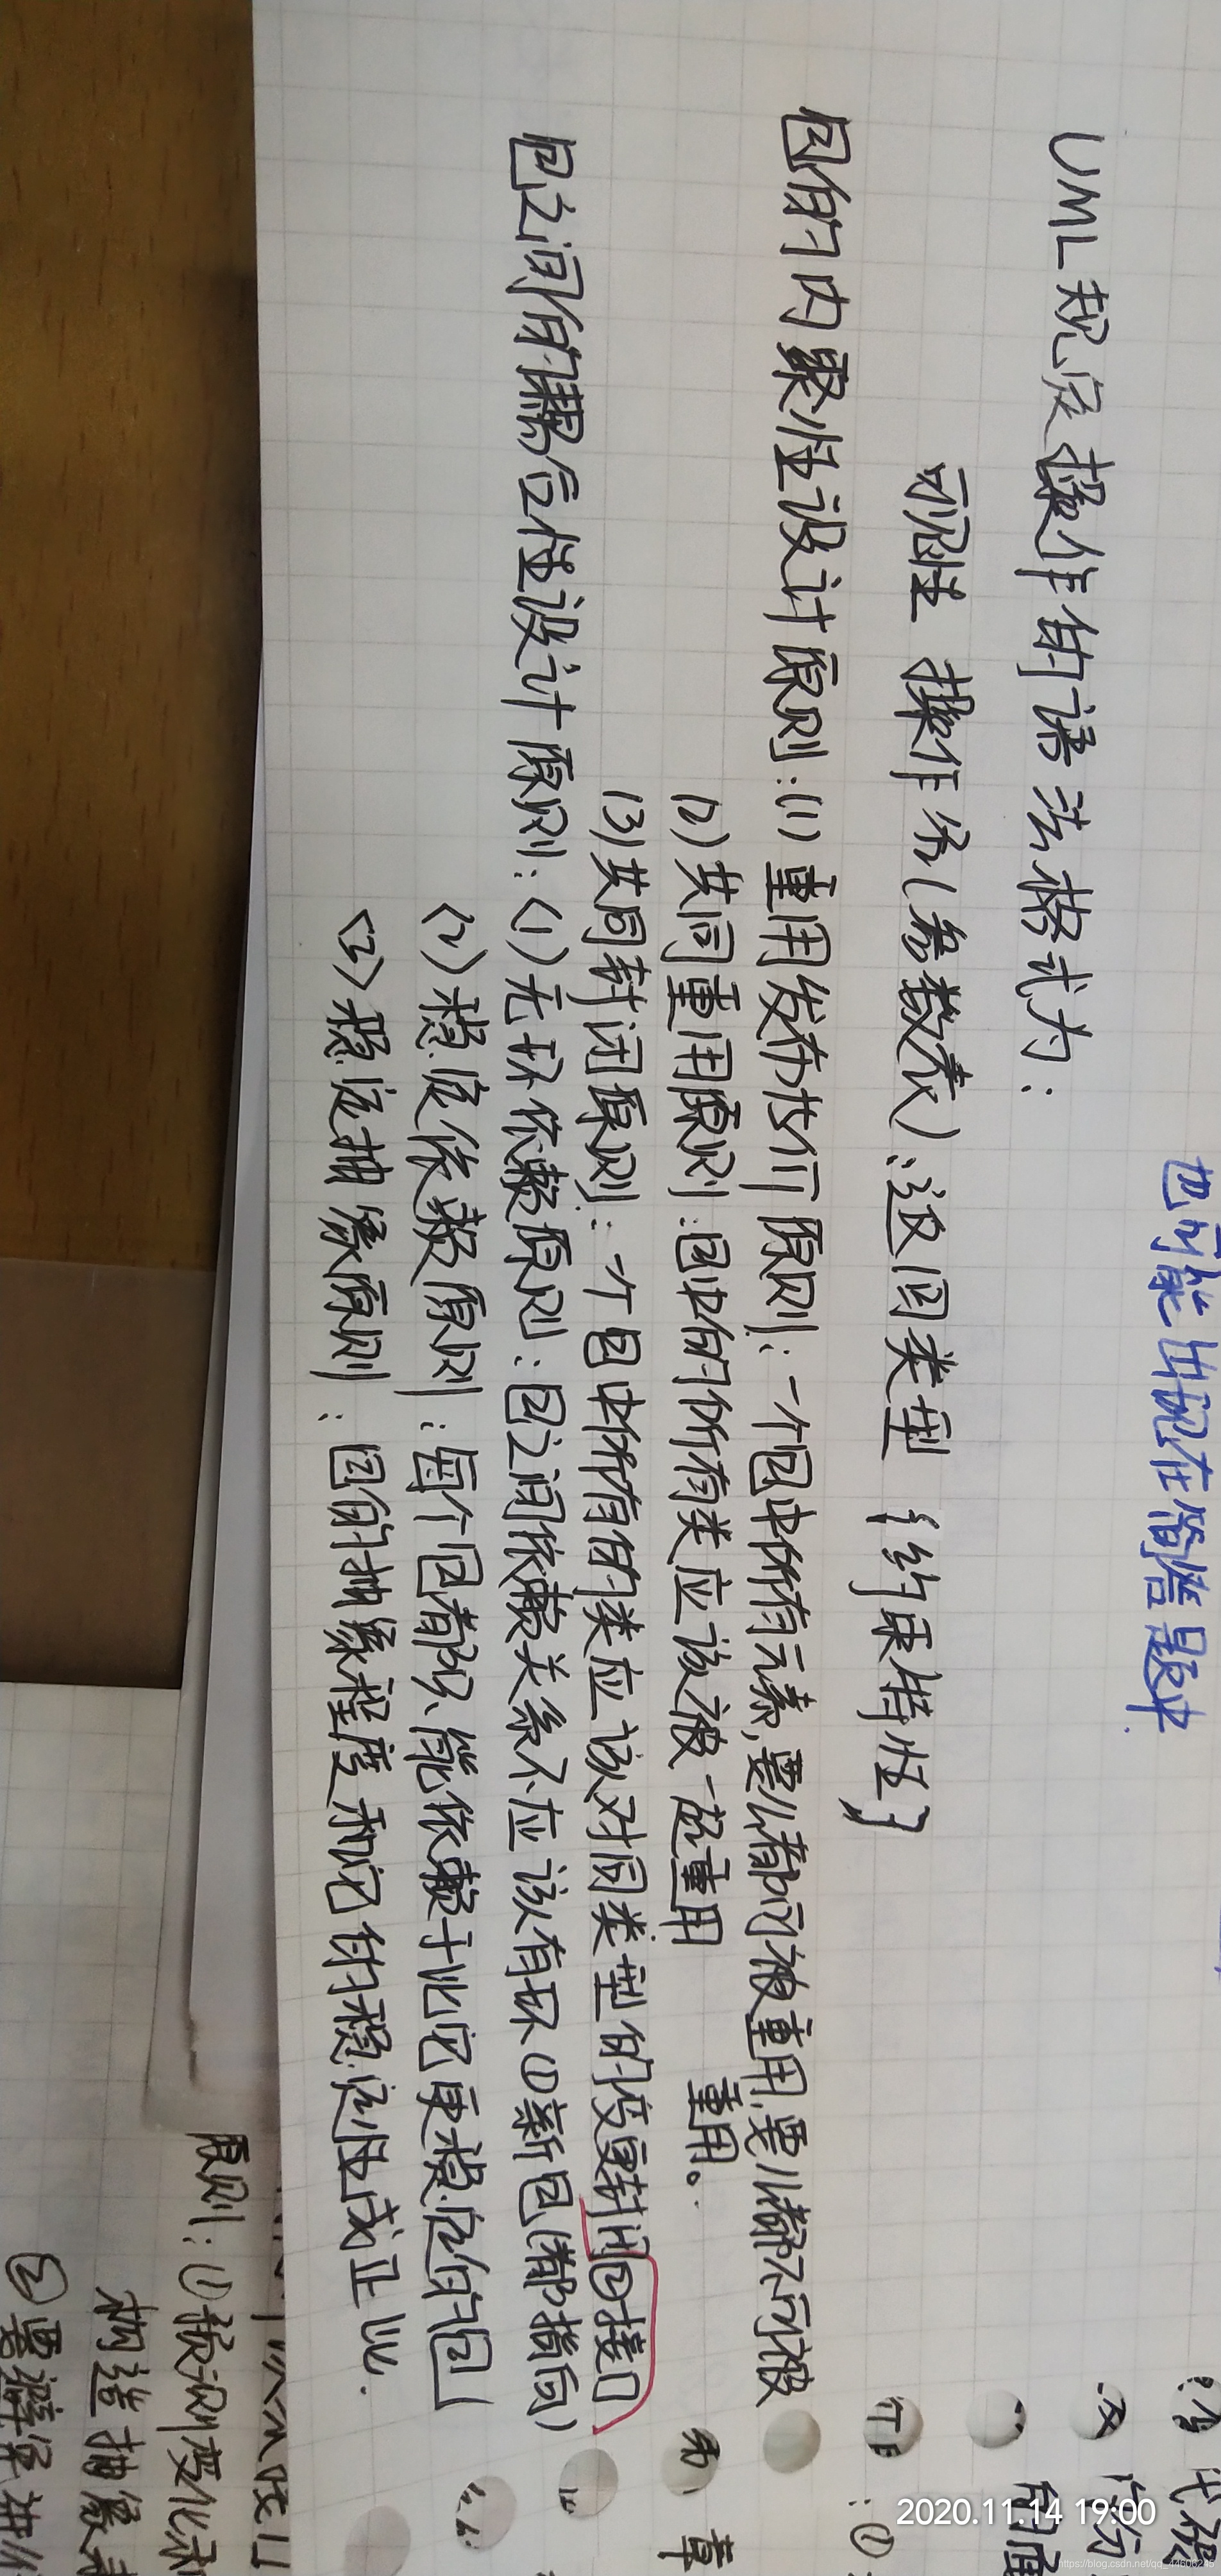 也可能出现在简答题中.
UML规定操作的语法格式为：
可见性 操作名(参数表)：返回类型 {约束特性}
包的内聚性设计原则：(1) 重用发布等价原则：一个包中所有元素,要么都可被重用,要么都不可被
重用。
(2)共同重用原则：包中的所有类应该被一起重用
(3)共同封闭原则：一个包中所有的类应该对同类型的变更封闭 ②接口
包之间的耦合性设计原则：(1)无环依赖原则：包之间依赖关系不应该有环 ①新包(都指向)
(2)稳定依赖原则：每个包都只能依赖于比它更稳定的包
(3)稳定抽象原则：包的抽象程度和它的稳定性成正比.
原则：①预测变化和
构造抽象
②
2020.11.14 19:00